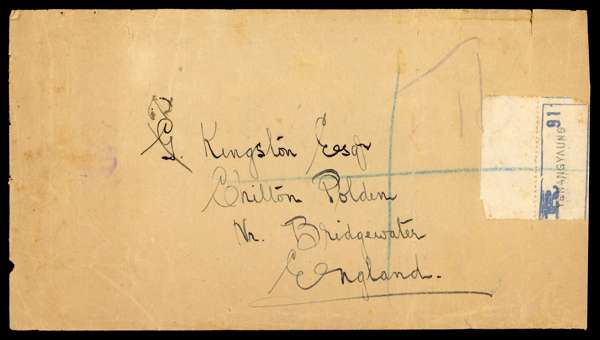 G. Kingston Esqr
Chilton Polden
Nr. Bridgewater
England.
R
YENANGYAUNG
91